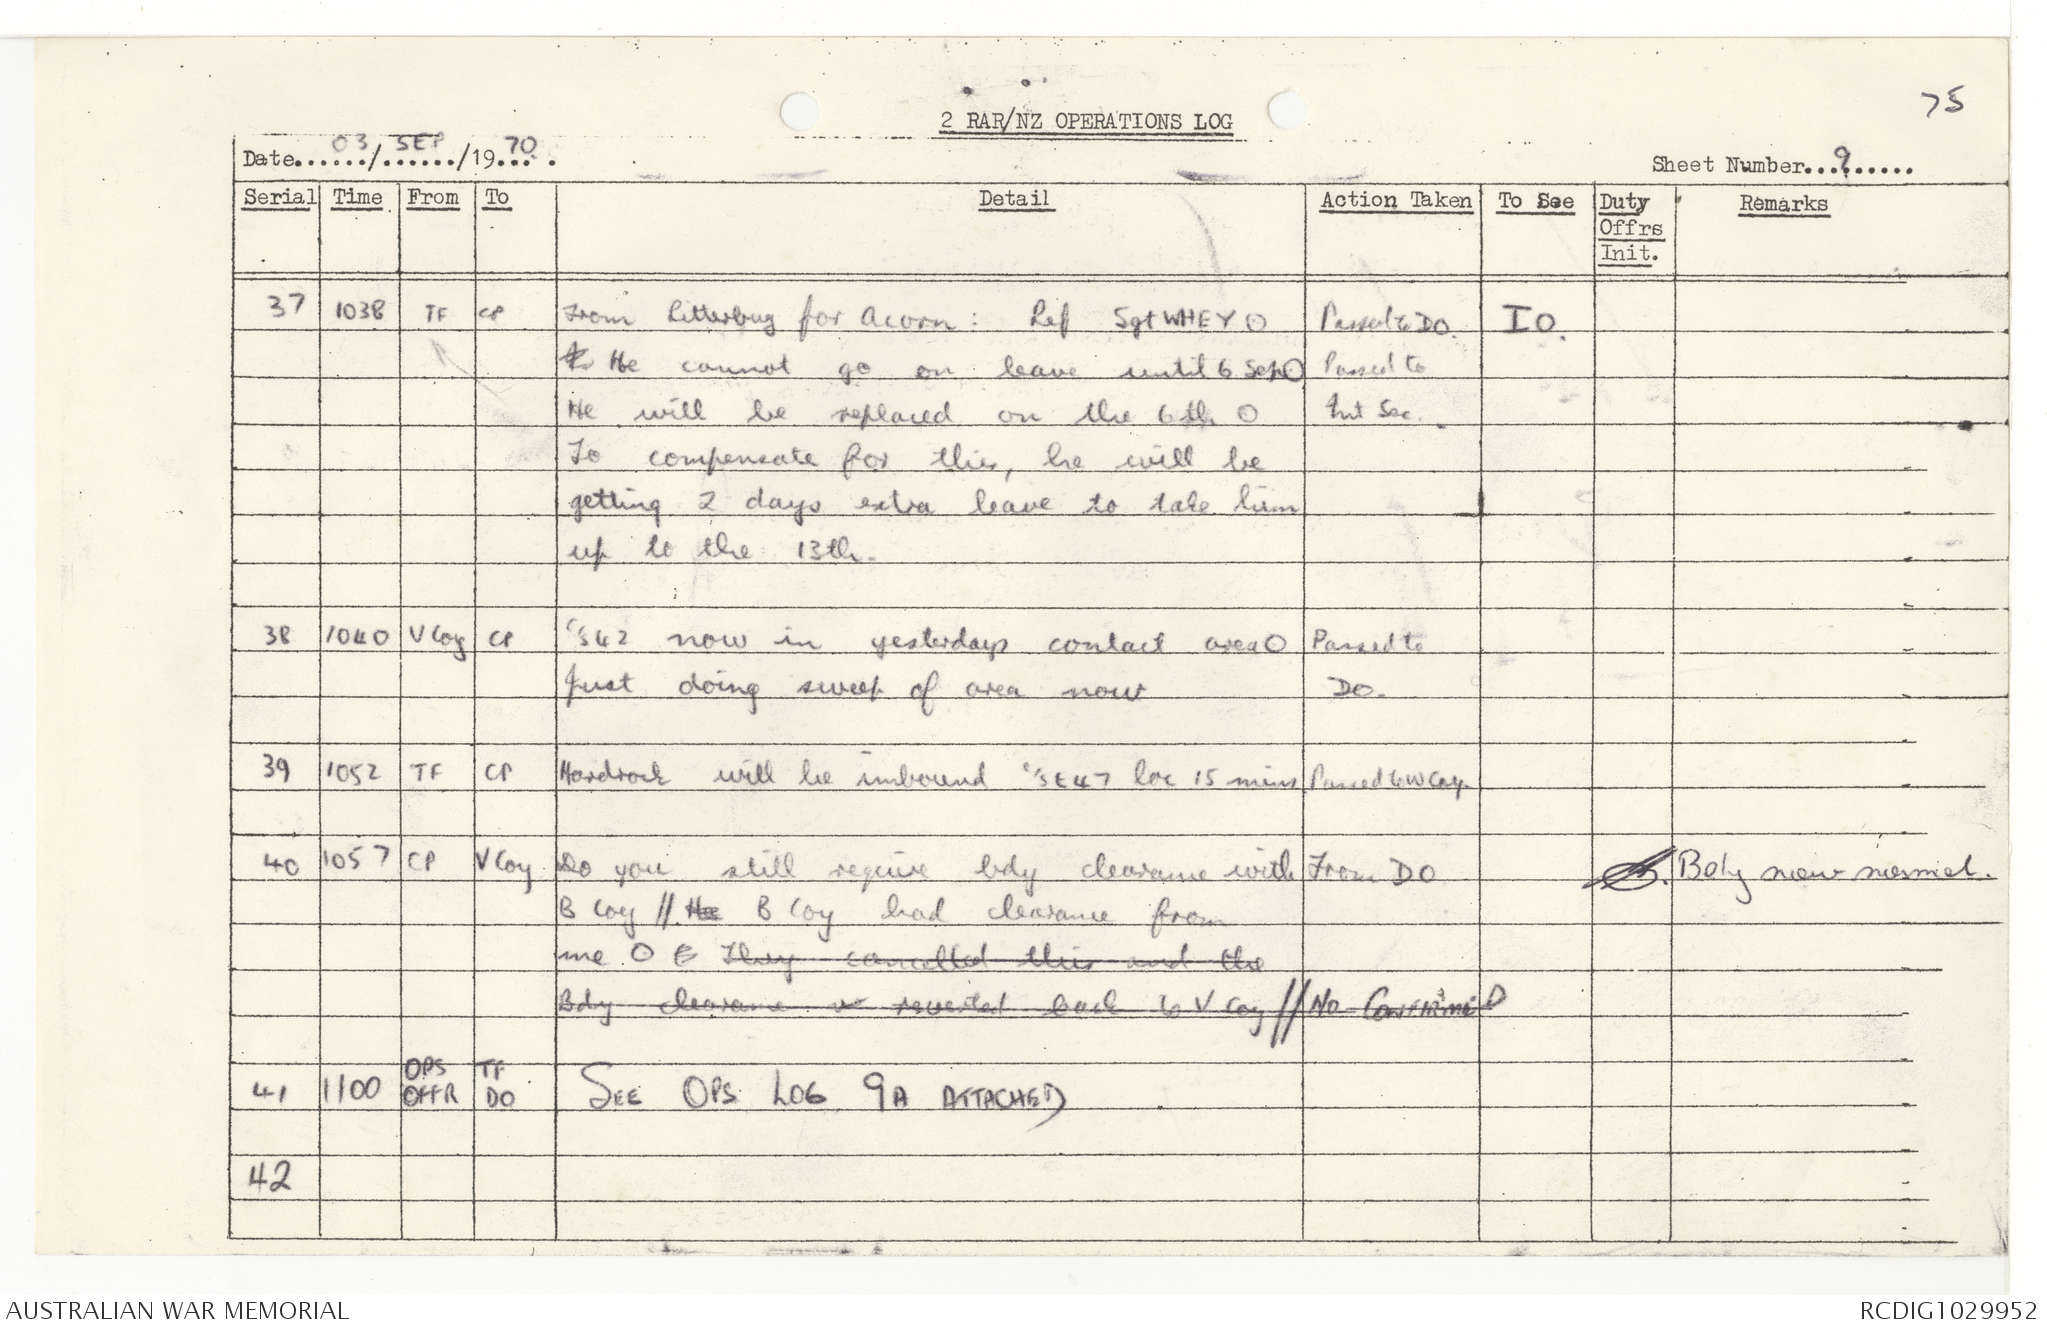 75
2 RAR/NZ OPERATIONS LOG
Date......03/SEP/1970....
Sheet Number...9......
Serial Time From To Detail Action Taken To See Duty Offrs Init. Remarks
37 1038 TF CP From Litterbug for Acorn: Ref Sgt WHEY O Passed to DO. IO.
He cannot go on leave until 6 Sep O Passed to
He will be replaced on the 6th O Int Sec.
To compensate for this, he will be
getting 2 days extra leave to take him
up to the 13th.
38 1040 V Coy CP C/S 42 now in yesterdays contact area O Passed to
Just doing sweep of area now DO.
39 1052 TF CP Hardrock will be inbound C/S E47 loc 15 mins Passed to W Coy.
40 1057 CP V Coy Do you still require bdy clearance with From DO Bdy now normal.
B Coy // He B Coy had clearance from
me O They cancelled this and the
Bdy clearance reverted back to V Coy // No - CONFIRMED
41 1100 OPS OFFR TF DO SEE OPS LOG 9A ATTACHED
42
AUSTRALIAN WAR MEMORIAL
RCDIG1029952